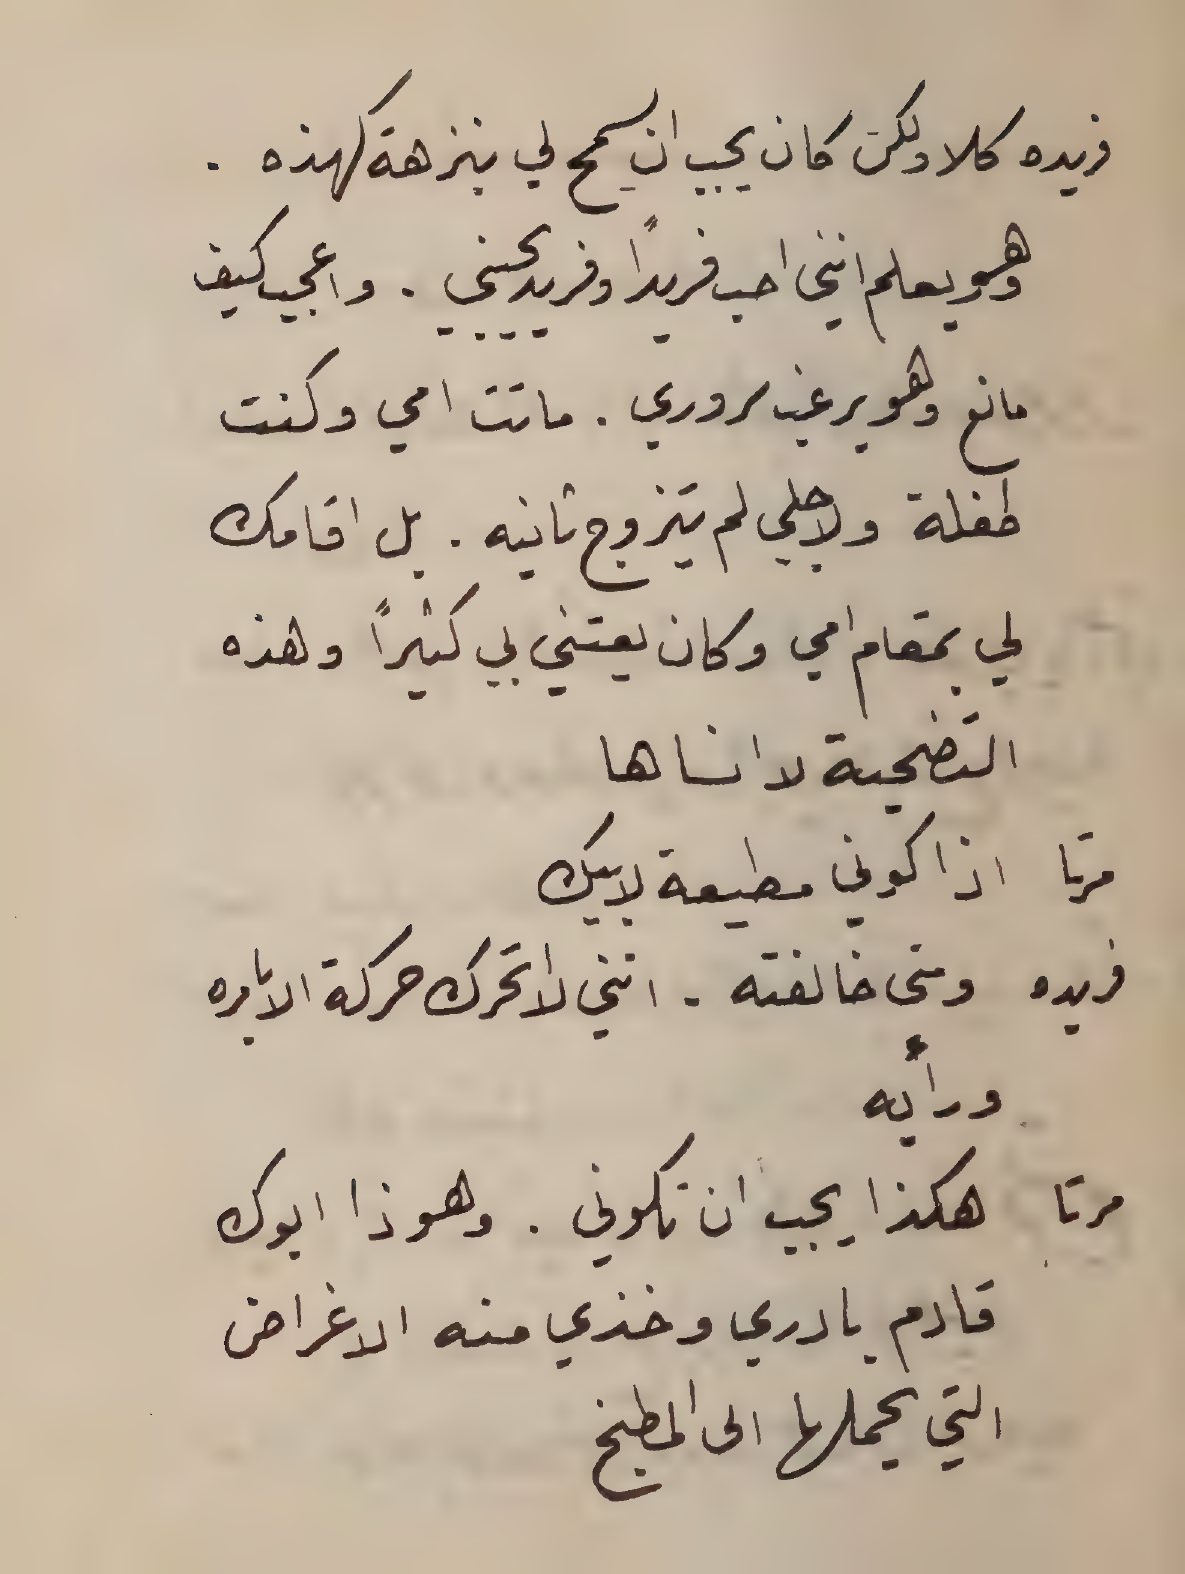 فريده كلا ولكن كان يجب ان يسمح لي بنزهة كهذه .
وهو يعلم انني احب فريدًا وفريد يحبني . واعجب كيف
مانع وهو يرغب سروري . ماتت امي وكنت
طفلة ولاجلي لم يتزوج ثانيه . بل اقامك
لي بمقام امي وكان يعتني بي كثيرًا وهذه
التضحية لا انساها
مرتا اذا كوني مطيعة لابيك
فريده ومتى خالفته . انني لا اتحرك حركة الا بامره
ورأيه
مرتا هكذا يجب ان تكوني . وهوذا ابوك
قادم بادري وخذي منه الاغراض
التي يحملها الى المطبخ